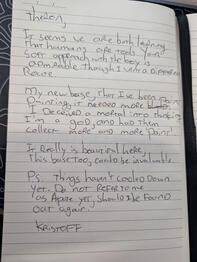 Theron,
It seems we are both learning
that humans are tools. Your
soft approach with the boy is
admirable though I went a different
Route.
My new base, that I've been
Painting, it needed more
I deceived a mortal into thinking
I'm a god, and had them
collect more and more paint.
It Really is beautiful here,
This base too, could be invaluable.
Ps. Things haven't cooled down
yet. Do not Refer to me
as Apate yet, should I be found
out again.
Kristoff